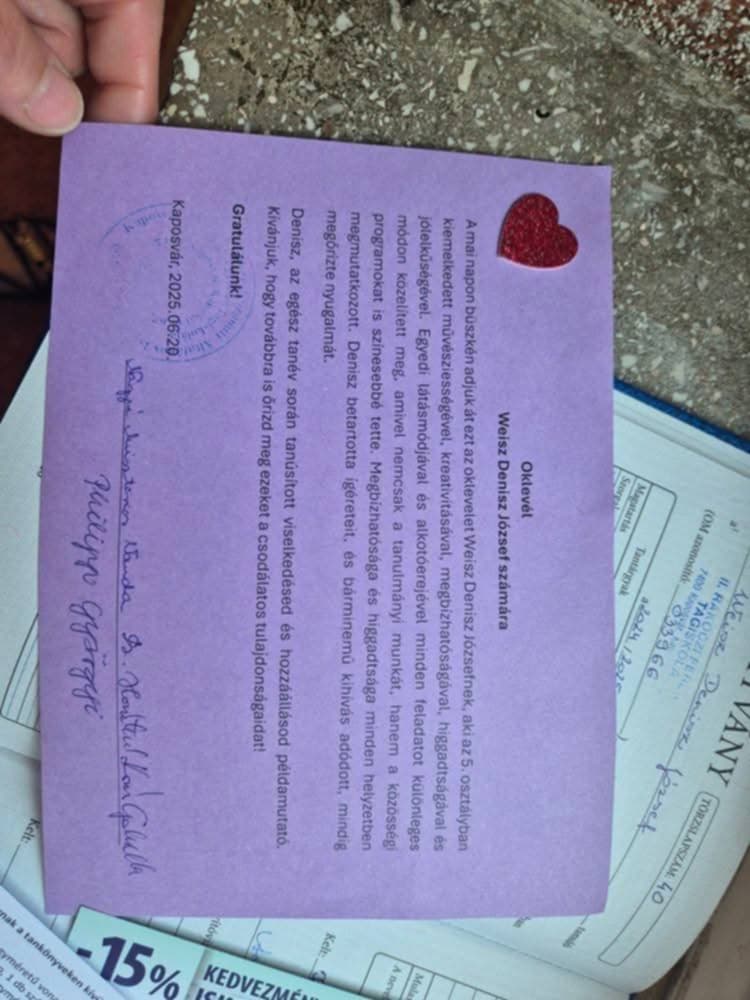 Oklevél
Weisz Denisz József számára
A mai napon büszkén adjuk át ezt az oklevelet Weisz Denisz Józsefnek, aki az 5. osztályban
kiemelkedett művésziességével, kreativitásával, megbízhatóságával, higgadtságával és
jólelkűségével. Egyedi látásmódjával és alkotóerejével minden feladatot különleges
módon közelített meg, amivel nemcsak a tanulmányi munkát, hanem a közösségi
programokat is színesebbé tette. Megbízhatósága és higgadtsága minden helyzetben
megmutatkozott. Denisz betartotta ígéreteit, és bárminemű kihívás adódott, mindig
megőrizte nyugalmát.
Denisz, az egész tanév során tanúsított viselkedésed és hozzáállásod példamutató.
Kívánjuk, hogy továbbra is őrizd meg ezeket a csodálatos tulajdonságaidat!
Gratulálunk!
Kaposvár, 2025.06.20
Philipp Györgyi
TÖRZSLAPSZÁM: 40
Weisz Denisz József
(OM azonosító:
II. RÁKÓCZI FERENC
TAG
ISKOLA
033966
a 2024/2025
Tantárgyak
Magatartás
Szorgalom
Kelt:
Kelt:
-15%
KEDVEZMÉN